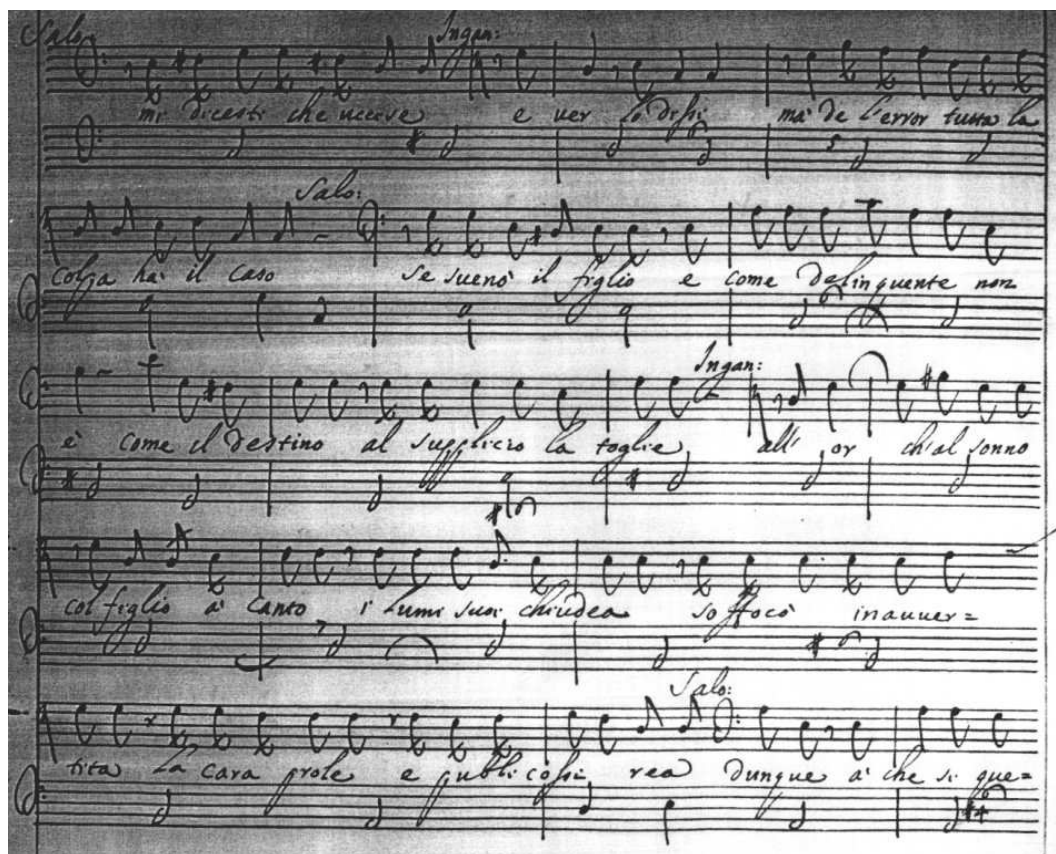 Salo: Ingan:
mi dicesti che uccise e ver lo dissi mà de l'error tutta la
Salo:
colpa hà il caso se suenò il figlio e come delinquente non
Ingan:
è come il destino al supplicio la toglie all' or ch'al sonno
col figlio à canto i lumi suoi chiudea soffocò inauuer=
Salo:
tita la cara prole e publicossi rea dunque à che si que=